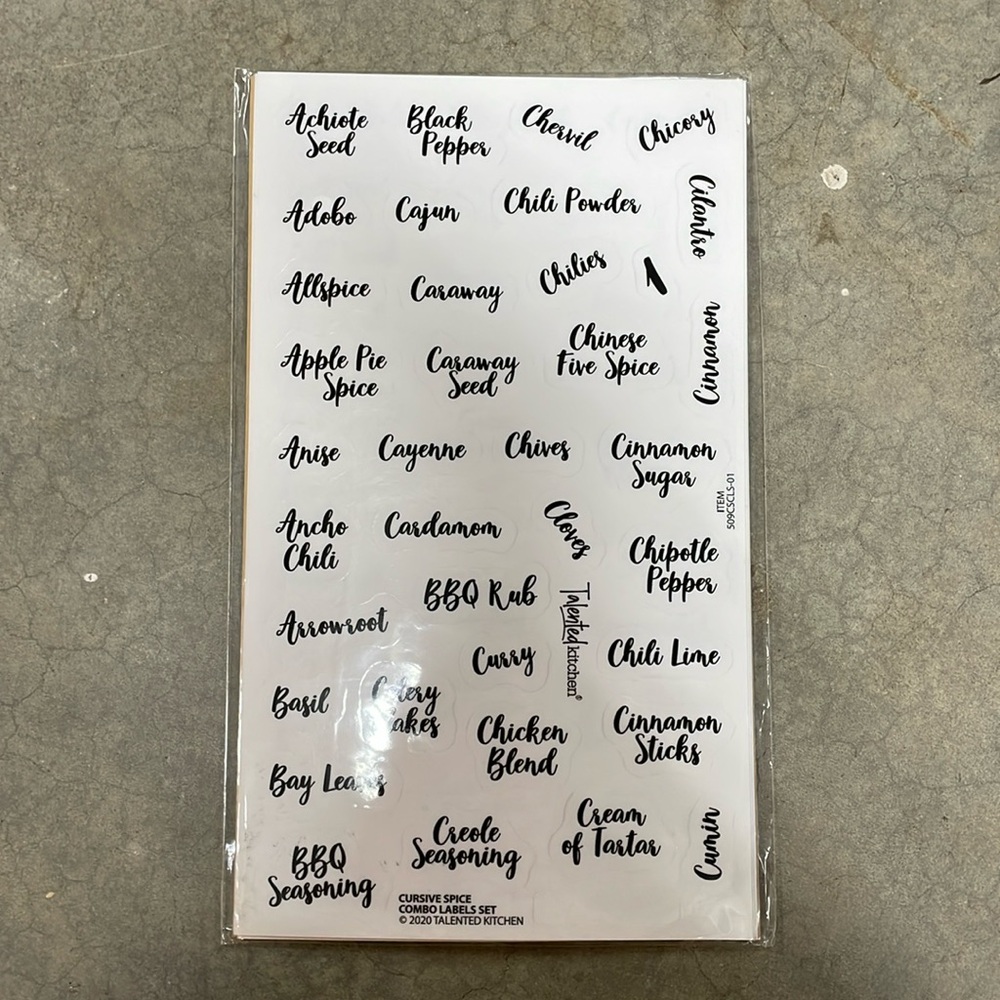 Achiote
Seed
Black
Pepper
Chervil
Chicory
Adobo
Cajun
Chili Powder
Cilantro
Allspice
Caraway
Chilies
1
Cinnamon
Apple Pie
Spice
Caraway
Seed
Chinese
Five Spice
Anise
Cayenne
Chives
Cinnamon
Sugar
ITEM
509CSCLS-01
Ancho
Chili
Cardamom
Cloves
Chipotle
Pepper
Arrowroot
BBQ Rub
Talented kitchen®
Curry
Chili Lime
Basil
Celery
Chicken
Blend
Cinnamon
Sticks
Bay Leaves
BBQ
Seasoning
Creole
Seasoning
Cream
of Tartar
Cumin
CURSIVE SPICE
COMBO LABELS SET
© 2020 TALENTED KITCHEN